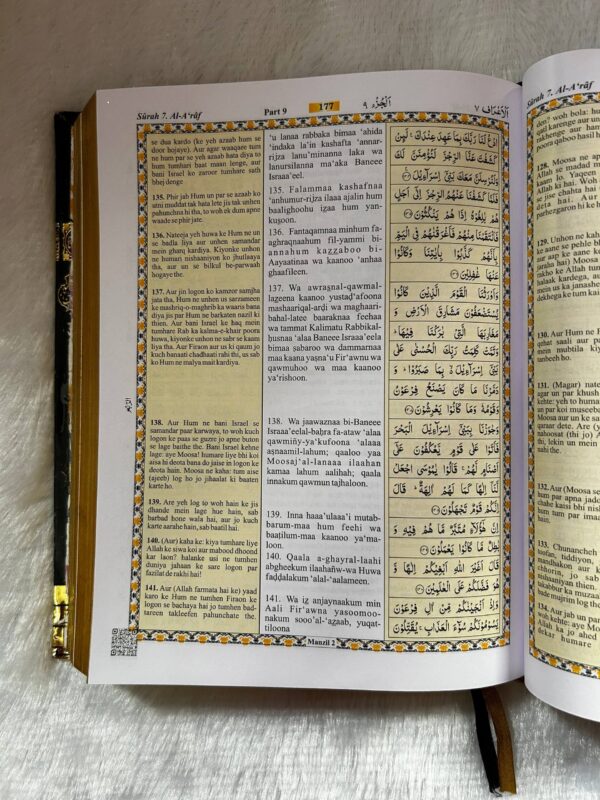 Sûrah 7. Al-A'râf
Part 9
177
اَلْجُزْء ٩
اَلْاَعْرَاف ٧
se dua kardo (ke yeh azaab hum se
door hojaye). Aur agar waaqaee tum
ne hum par se yeh azaab hata diya to
hum tumhari baat maan lenge, aur
bani Israel ko zaroor tumhare sath
bhej denge
135. Phir jab Hum un par se azaab ko
utni muddat tak hata lete jis tak unhen
pahunchna hi tha, to woh ek dum apne
waade se phir jate.
136. Nateeja yeh huwa ke Hum ne un
se badla liya aur unhen samandar
mein gharq kardiya. Kiyonke unhon
ne hamari nishaaniyon ko jhutlaaya
tha, aur un se bilkul be-parwaah
hogaye the.
137. Aur jin logon ko kamzor samjha
jata tha, Hum ne unhen us sarzameen
ke mashriq-o-maghrib ka waaris bana
diya jis par Hum ne barkaten nazil ki
thien. Aur bani Israel ke haq mein
tumhare Rab ka kalma-e-khair poora
huwa, kiyonke unhon ne sabr se kaam
liya tha. Aur Firaon aur us ki qaum jo
kuch banaati chadhaati rahi thi, us sab
ko Hum ne malya mait kardiya.
138. Aur Hum ne bani Israel se
samandar paar karwaya, to woh kuch
logon ke paas se guzre jo apne buton
se lage baithe the. Bani Israel kehne
lage: aye Moosa! humare liye bhi koi
aisa hi deota bana do jaise in logon ke
deota hain. Moosa ne kaha: tum aise
(ajeeb) log ho jo jihaalat ki baaten
karte ho.
139. Are yeh log to woh hain ke jis
dhande mein lage hue hain, sab
barbad hone wala hai, aur jo kuch
karte aarahe hain, sab baatil hai.
140. (Aur) kaha ke: kiya tumhare liye
Allah ke siwa koi aur mabood dhoond
kar laon? halanke usi ne tumhen
duniya jahaan ke sare logon par
fazilat de rakhi hai!
141. Aur (Allah farmata hai ke) yaad
karo ke Hum ne tumhen Firaon ke
logon se bachaya hai jo tumhen bad-
tareen takleefen pahunchate the.
'u lanaa rabbaka bimaa 'ahida
'indaka la'in kashafta 'annar-
rijza lanu'minanna laka wa
lanursilanna ma'aka Baneee
Israaa'eel.
135. Falammaa kashafnaa
'anhumur-rijza ilaaa ajalin hum
baalighoohu izaa hum yan-
kusoon.
136. Fantaqamnaa minhum fa-
aghraqnaahum fil-yammi bi-
annahum kazzaboo bi-
Aayaatinaa wa kaanoo 'anhaa
ghaafileen.
137. Wa awrasnal-qawmal-
lazeena kaanoo yustad'afoona
mashaariqal-ardi wa maghaari-
bahal-latee baaraknaa feehaa
wa tammat Kalimatu Rabbikal-
husnaa 'alaa Baneee Israaa'eela
bimaa sabaroo wa dammarnaa
maa kaana yasna'u Fir'awnu wa
qawmuhoo wa maa kaanoo
ya'rishoon.
138. Wa jaawaznaa bi-Baneee
Israaa'eelal-bahra fa-ataw 'alaa
qawmiñy-ya'kufoona 'alaaa
asnaamil-lahum; qaaloo yaa
Moosaj'al-lanaaa ilaahan
kamaa lahum aalihah; qaala
innakum qawmun tajhaloon.
139. Inna haaa'ulaaa'i mutab-
barum-maa hum feehi wa
baatilum-maa kaanoo ya'ma-
loon.
140. Qaala a-ghayral-laahi
abgheekum ilaahañw-wa Huwa
faddalakum 'alal-'aalameen.
141. Wa iz anjaynaakum min
Aali Fir'awna yasoomoo-
nakum sooo'al-'azaab, yuqat-
tiloona
ادْعُ لَنَا رَبَّكَ بِمَا عَهِدَ عِنْدَكَ ۚ لَئِنْ
كَشَفْتَ عَنَّا الرِّجْزَ لَنُؤْمِنَنَّ لَكَ
وَلَنُرْسِلَنَّ مَعَكَ بَنِيْٓ اِسْرَآءِيْلَ
فَلَمَّا كَشَفْنَا عَنْهُمُ الرِّجْزَ اِلٰٓى اَجَلٍ
هُمْ بٰلِغُوْهُ اِذَا هُمْ يَنْكُثُوْنَ
فَانْتَقَمْنَا مِنْهُمْ فَاَغْرَقْنٰهُمْ فِي الْيَمِّ
بِاَنَّهُمْ كَذَّبُوْا بِاٰيٰتِنَا وَكَانُوْا
عَنْهَا غٰفِلِيْنَ
وَاَوْرَثْنَا الْقَوْمَ الَّذِيْنَ كَانُوْا
يُسْتَضْعَفُوْنَ مَشَارِقَ الْاَرْضِ وَ
مَغَارِبَهَا الَّتِيْ بٰرَكْنَا فِيْهَا ؕ
وَتَمَّتْ كَلِمَتُ رَبِّكَ الْحُسْنٰى عَلٰى
بَنِيْٓ اِسْرَآءِيْلَ ۙ بِمَا صَبَرُوْا ؕ وَ
دَمَّرْنَا مَا كَانَ يَصْنَعُ فِرْعَوْنُ
وَقَوْمُهٗ وَمَا كَانُوْا يَعْرِشُوْنَ
وَجٰوَزْنَا بِبَنِيْٓ اِسْرَآءِيْلَ الْبَحْرَ
فَاَتَوْا عَلٰى قَوْمٍ يَّعْكُفُوْنَ عَلٰٓى
اَصْنَامٍ لَّهُمْ ۚ قَالُوْا يٰمُوْسَى اجْعَلْ
لَّنَآ اِلٰهًا كَمَا لَهُمْ اٰلِهَةٌ ؕ قَالَ
اِنَّكُمْ قَوْمٌ تَجْهَلُوْنَ
اِنَّ هٰٓؤُلَآءِ مُتَبَّرٌ مَّا هُمْ فِيْهِ وَ
بٰطِلٌ مَّا كَانُوْا يَعْمَلُوْنَ
قَالَ اَغَيْرَ اللّٰهِ اَبْغِيْكُمْ اِلٰهًا وَّ
هُوَ فَضَّلَكُمْ عَلَى الْعٰلَمِيْنَ
وَاِذْ اَنْجَيْنٰكُمْ مِّنْ اٰلِ فِرْعَوْنَ
يَسُوْمُوْنَكُمْ سُوْٓءَ الْعَذَابِ ۚ يُقَتِّلُوْنَ
Manzil 2
Sûrah 7. Al-A'râf
128. Moosa ne ap
129. Unhon ne kah
130. Aur Hum ne
131. (Magar) nate
132. Aur (Moosa se
133. Chunancheh
134. Aur jab un par